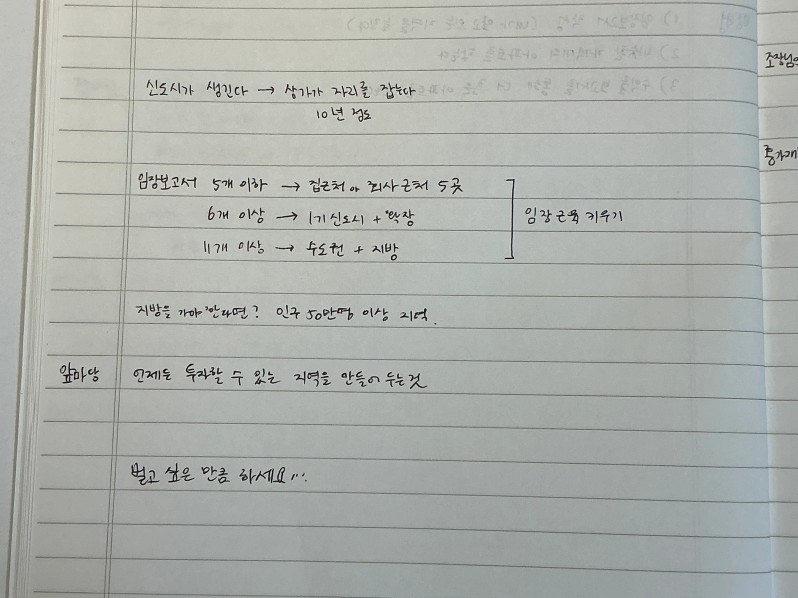 신도시가 생긴다 → 상가가 자리를 잡는다
10년 정도
임장보고서 5개 이하 → 집근처 or 회사근처 5곳
6개 이상 → 1기신도시 + 확장
11개 이상 → 수도권 + 지방
임장근육 키우기
지방을 가야한다면? 인구 50만명 이상 지역.
앞마당 언제든 투자할 수 있는 지역을 만들어 두는것
벌고 싶은 만큼 하세요...
조장님